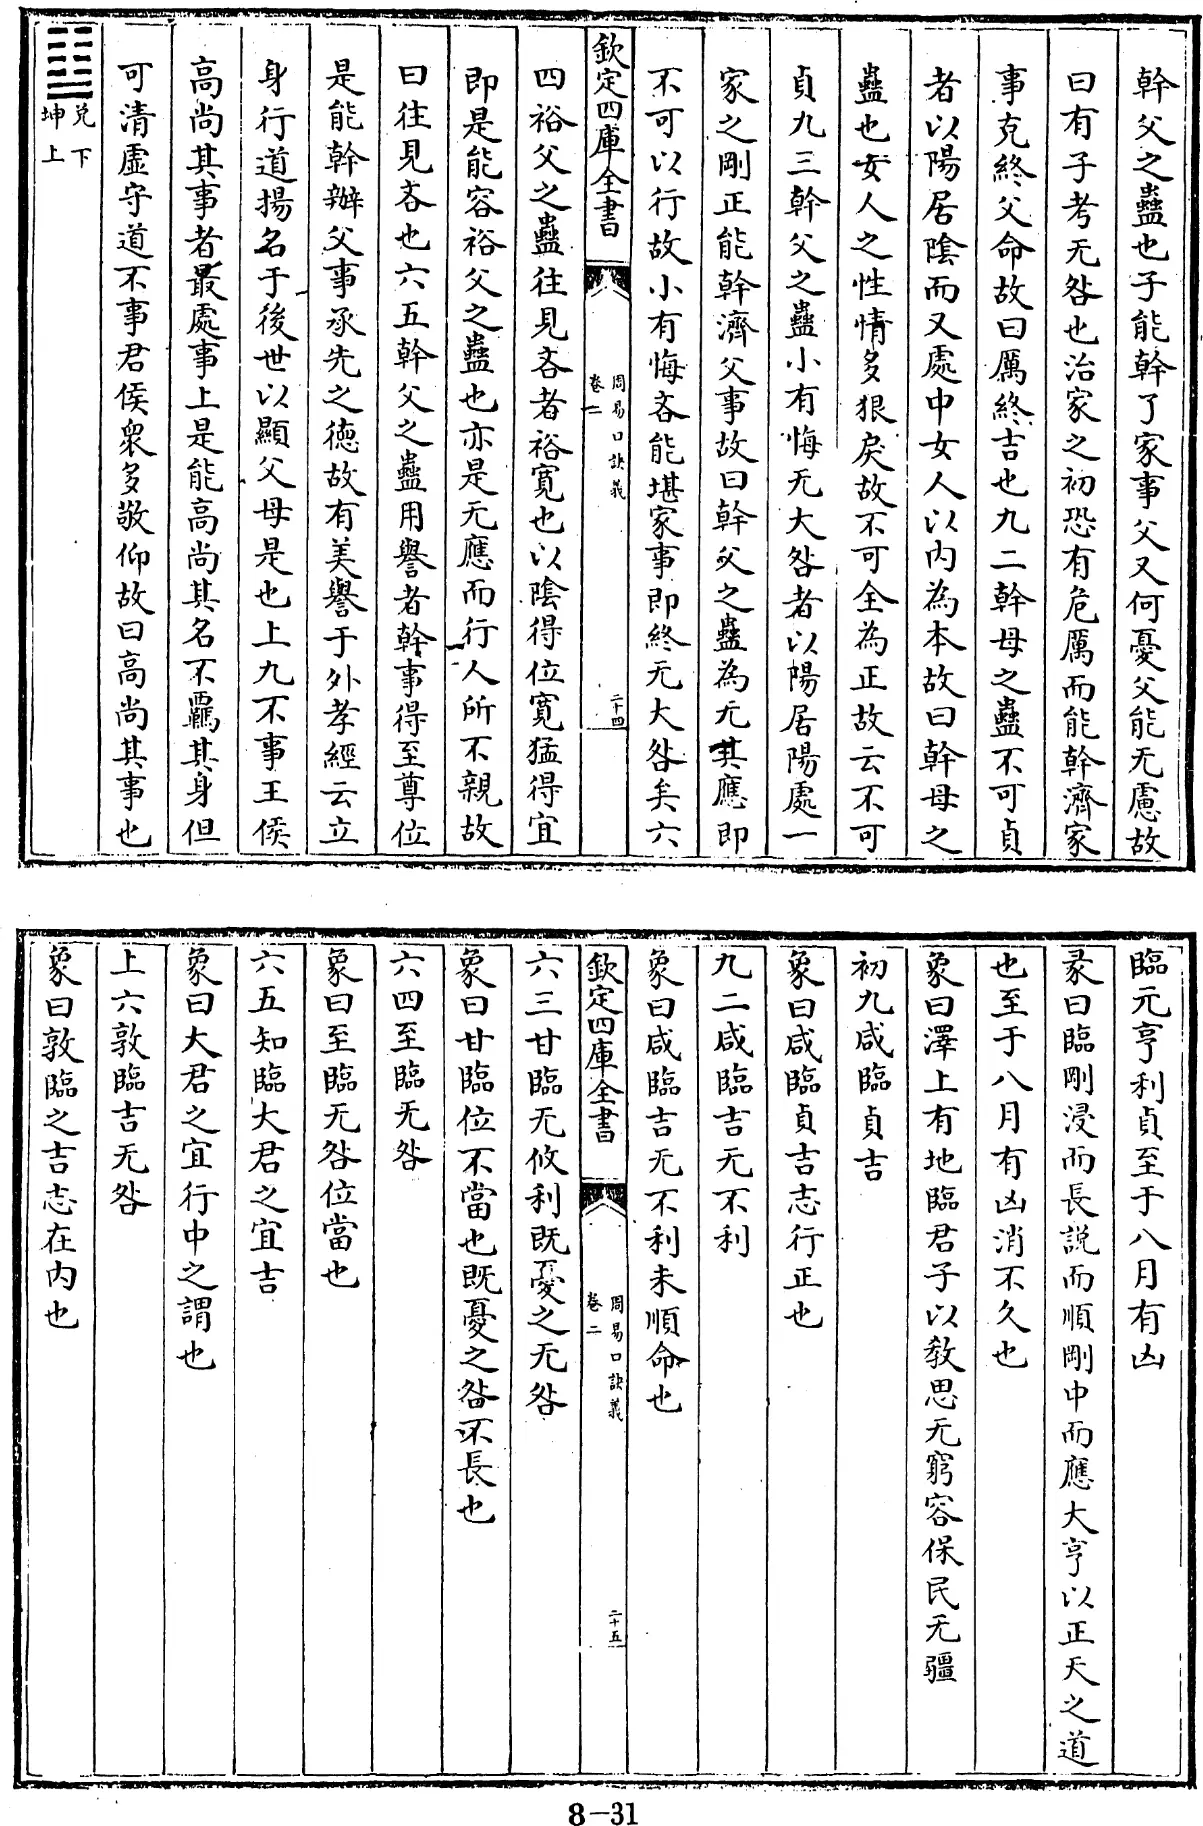 幹父之蠱也子能幹了家事父又何憂父能无慮故
曰有子考无咎也治家之初恐有危厲而能幹濟家
事克終父命故曰厲終吉也九二幹母之蠱不可貞
者以陽居陰而又處中女人以内為本故曰幹母之
蠱也女人之性情多狠戾故不可全為正故云不可
貞九三幹父之蠱小有悔无大咎者以陽居陽處一
家之剛正能幹濟父事故曰幹父之蠱為无其應即
不可以行故小有悔吝能堪家事即終无大咎矣六
欽定四庫全書
周易口訣義
卷二
二十四
四裕父之蠱往見吝者裕寛也以陰得位寛猛得宜
即是能容裕父之蠱也亦是无應而行人所不親故
曰往見吝也六五幹父之蠱用譽者幹事得至尊位
是能幹辦父事承先之徳故有美譽于外孝經云立
身行道揚名于後世以顯父母是也上九不事王侯
高尚其事者最處事上是能高尚其名不羈其身但
可清虛守道不事君侯衆多敬仰故曰高尚其事也
兌下
坤上
臨元亨利貞至于八月有凶
彖曰臨剛浸而長説而順剛中而應大亨以正天之道
也至于八月有凶消不久也
象曰澤上有地臨君子以教思无窮容保民无疆
初九咸臨貞吉
象曰咸臨貞吉志行正也
九二咸臨吉无不利
象曰咸臨吉无不利未順命也
欽定四庫全書
周易口訣義
卷二
二十五
六三甘臨无攸利既憂之无咎
象曰甘臨位不當也既憂之咎不長也
六四至臨无咎
象曰至臨无咎位當也
六五知臨大君之宜吉
象曰大君之宜行中之謂也
上六敦臨吉无咎
象曰敦臨之吉志在内也
8-31